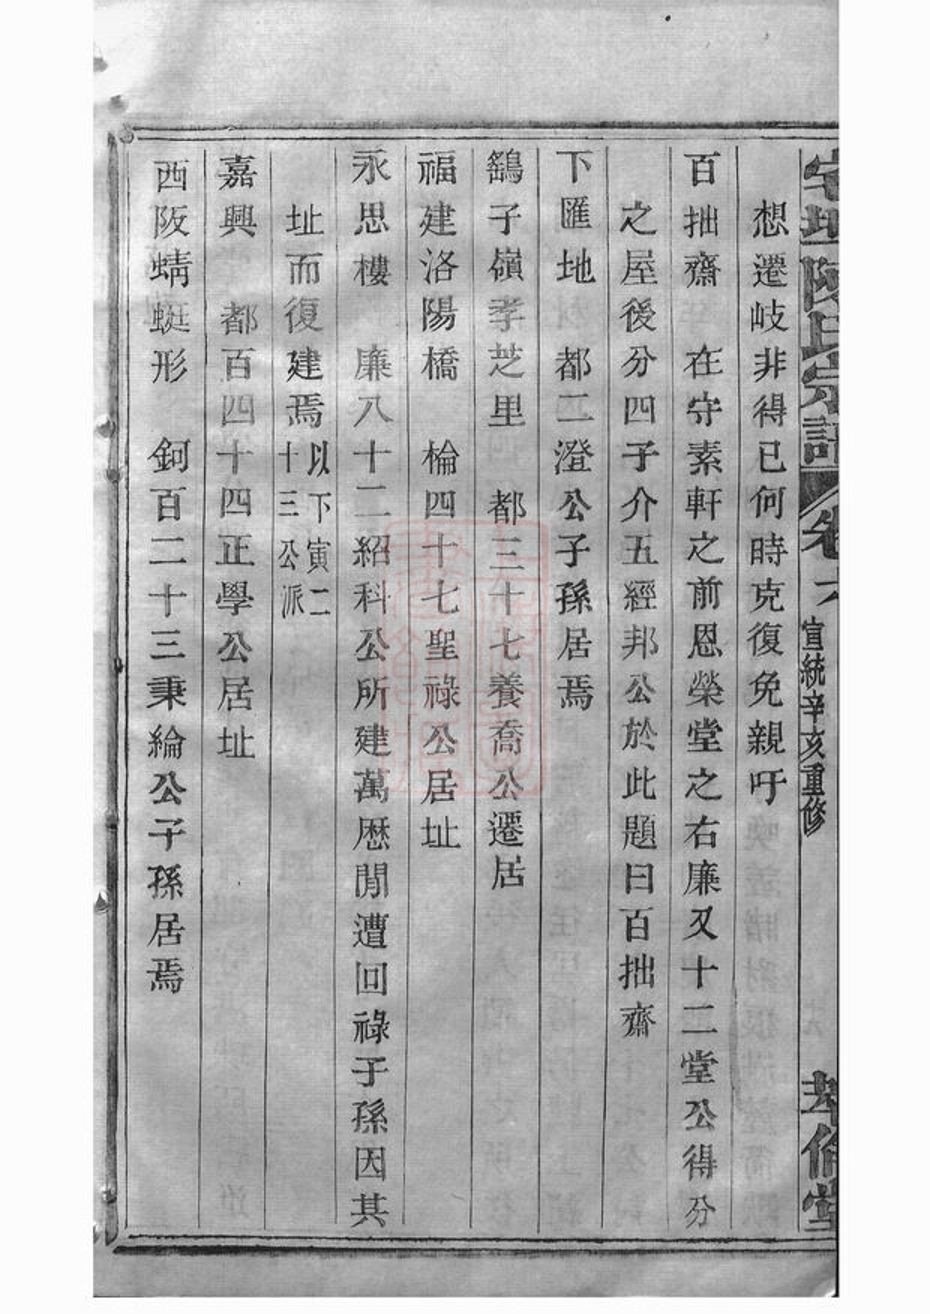 宅坦陳氏宗譜 卷六 宣統辛亥重修 敘倫堂
想遷岐非得已何時克復免親吁
百拙齋 在守素軒之前恩榮堂之右廉又十二堂公得分
之屋後分四子介五經邦公於此題曰百拙齋
下匯地 都二澄公子孫居焉
鷂子嶺孝芝里 都三十七養喬公遷居
福建洛陽橋 棆四十七聖祿公居址
永思樓 廉八十二紹科公所建萬厯閒遭回祿子孫因其
址而復建焉以下寅二十三公派
嘉興 都百四十四正學公居址
西阪蜻蜓形 鈳百二十三秉綸公子孫居焉